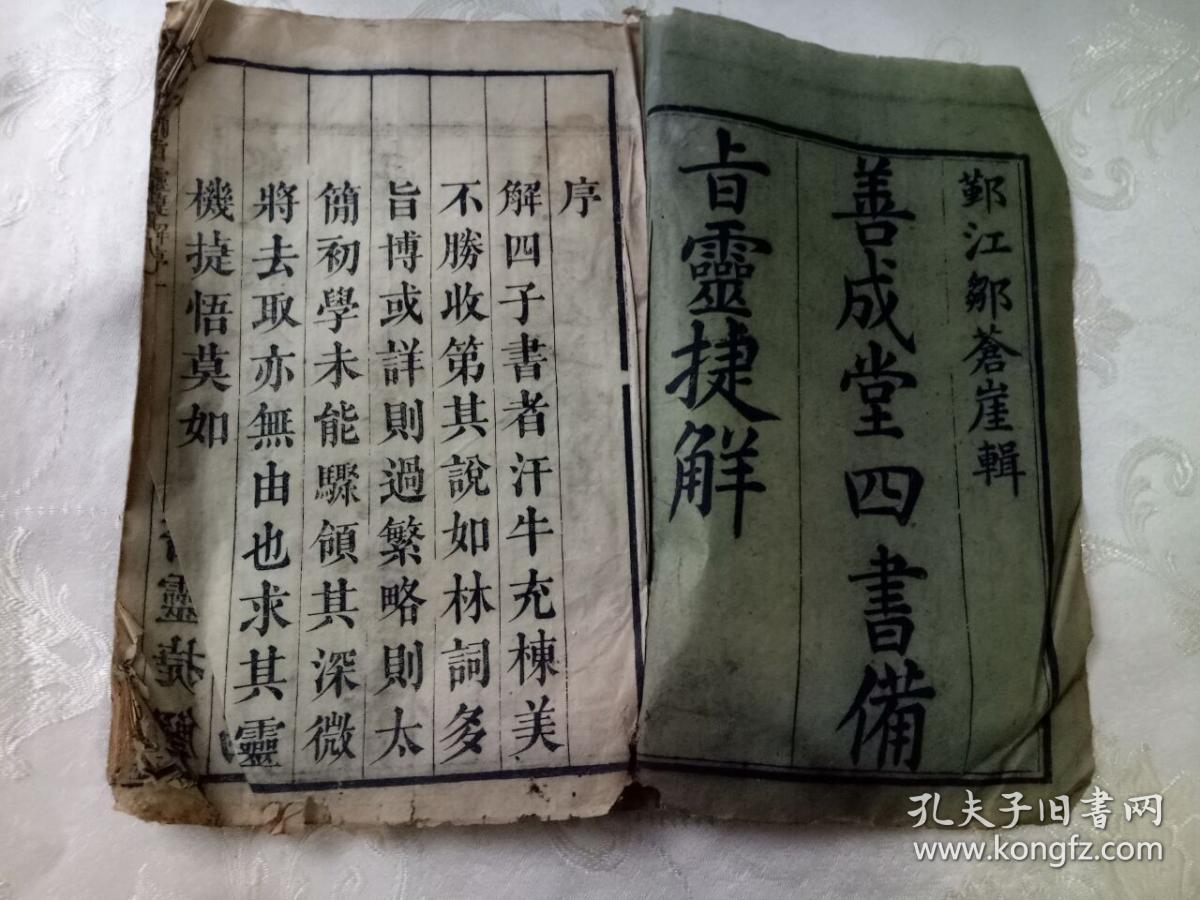 鄞江鄒蒼崖輯
善成堂四書備
旨靈捷解
序
解四子書者汗牛充棟美
不勝收第其說如林詞多
旨博或詳則過繁略則太
簡初學未能驟領其深微
將去取亦無由也求其靈
機捷悟莫如
靈捷
孔夫子旧书网
www.kongfz.com